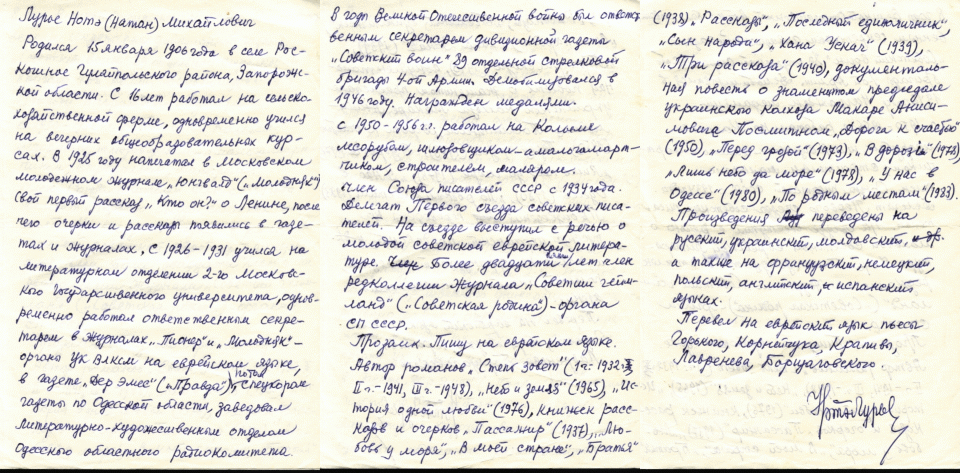 Лурье Нотэ (Натан) Михайлович
Родился 15 января 1906 года в селе Рос-
кошное Гуляйпольского района, Запорож-
ской области. С 16 лет работал на сельско-
хозяйственной ферме, одновременно учился
на вечерних общеобразовательных кур-
сах. В 1925 году напечатал в Московском
молодежном журнале „Юнгвалд" („Молодняк")
свой первый рассказ „Кто он?" о Ленине, после
чего очерки и рассказы появились в газе-
тах и журналах. С 1926-1931 учился на
литературном отделении 2-го Москов-
ского Государственного университета, однов-
ременно работал ответственным секре-
тарем в журналах „Пионер" и „Молодняк" -
органы ЦК ВЛКСМ на еврейском языке,
в газете „Дер Эмес" („Правда"), потом спецкором
газеты по Одесской области, заведовал
литературно-художественным отделом
Одесского областного радиокомитета.
В годы Великой Отечественной войны был ответст-
венным секретарем дивизионной газеты
„Советский воин" 89 отдельной стрелковой
бригады 4ой Армии. Демобилизовался в
1946 году. Награжден медалями.
С 1950-1956 г.г. работал на Колыме
лесорубом, шлюзовщиком-амальгамар-
чиком, строителем, маляром.
Член Союза писателей СССР с 1934 года.
Делегат Первого съезда советских писа-
телей. На съезде выступил с речью о
молодой советской еврейской литера-
туре. Более двадцати лет член
редколлегии журнала „Советиш геймланд"
(„Советская родина") - органа
СП СССР.
Прозаик. Пишу на еврейском языке.
Автор романов „Степь зовет" (I ч.-1932
II ч.-1941, III ч.-1948), „Небо и земля" (1965), „Ис-
тория одной любви" (1976), книжек расс-
казов и очерков „Пассажир" (1937), „Лю-
бовь у моря", „В моей стране", „Братья"
(1938), „Рассказы", „Последний единоличник",
„Сын народа", „Хана Ускач" (1939),
„Три рассказа" (1940), документаль-
ная повесть о знаменитом председателе
украинского колхоза Макаре Аниси-
мовиче Посмитном „Дорога к счастью"
(1950), „Перед грозой" (1973), „В дороге" (1978),
„Лишь небо да море" (1978), „У нас в
Одессе" (1980), „По родным местам" (1983).
Произведения переведены на
русский, украинский, молдавский,
а также на французский, немецкий,
польский, английский, испанский
языках.
Перевел на еврейский язык пьесы
Горького, Корнейчука, Крапивы,
Лавренева, Борщаговского.
Нотэ Лурье